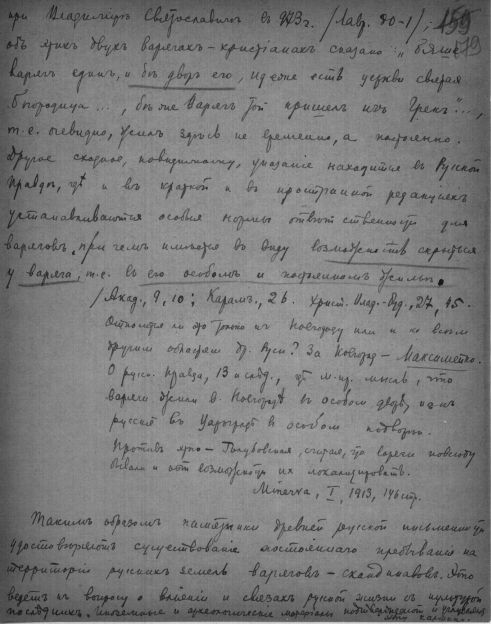 при Владимире Святославиче в 983 г. /Лавр. 80-1/:
об этих двух варягах-христианах сказано: „Бяше
варягъ единъ, и бѣ дворъ его, идеже есть церкви святая
Богородица ..., бѣ же Варягъ той пришелъ изъ Грекъ"...,
т.е. очевидно, жилъ здѣсь не временно, а постоянно.
Другое сходное, повидимому, указаніе находится въ Русской
Правдѣ, гдѣ и въ краткой и въ пространной редакціяхъ
устанавливаются особыя нормы отвѣтственности для
варяговъ, при чемъ имѣется въ виду возможность скрыться
у варяга, т.е. въ его особомъ и постоянномъ жильѣ.
/Акад., 9, 10; Карамз., 26. Христ. Влад.-Буд., 27, 45.
Относится ли это только къ Новгороду или и ко всѣмъ
другимъ областямъ др. Руси? За Новгородъ - Максимейко.
О русс. Правда, 13 и слѣд., гдѣ м.пр. мысль, что
варяги жили в Новгородѣ въ особомъ дворѣ, какъ
русские въ Царьградѣ въ особомъ подворьѣ.
Противъ это - Голубовская, считая, что варяги повсюду
бывали и нѣтъ возможности их локализировать.
Minerva, I, 1913, 146 стр.
Такимъ образомъ памятники древней русской письменности
удостовѣряютъ существованіе постояннаго пребыванія на
территоріи русскихъ земель варяговъ-скандинавовъ. Это
ведетъ къ вопросу о вліяніи и связяхъ русской жизни съ культурой
послѣднихъ. Иноземные и археологическіе матеріалы подтверждаютъ и